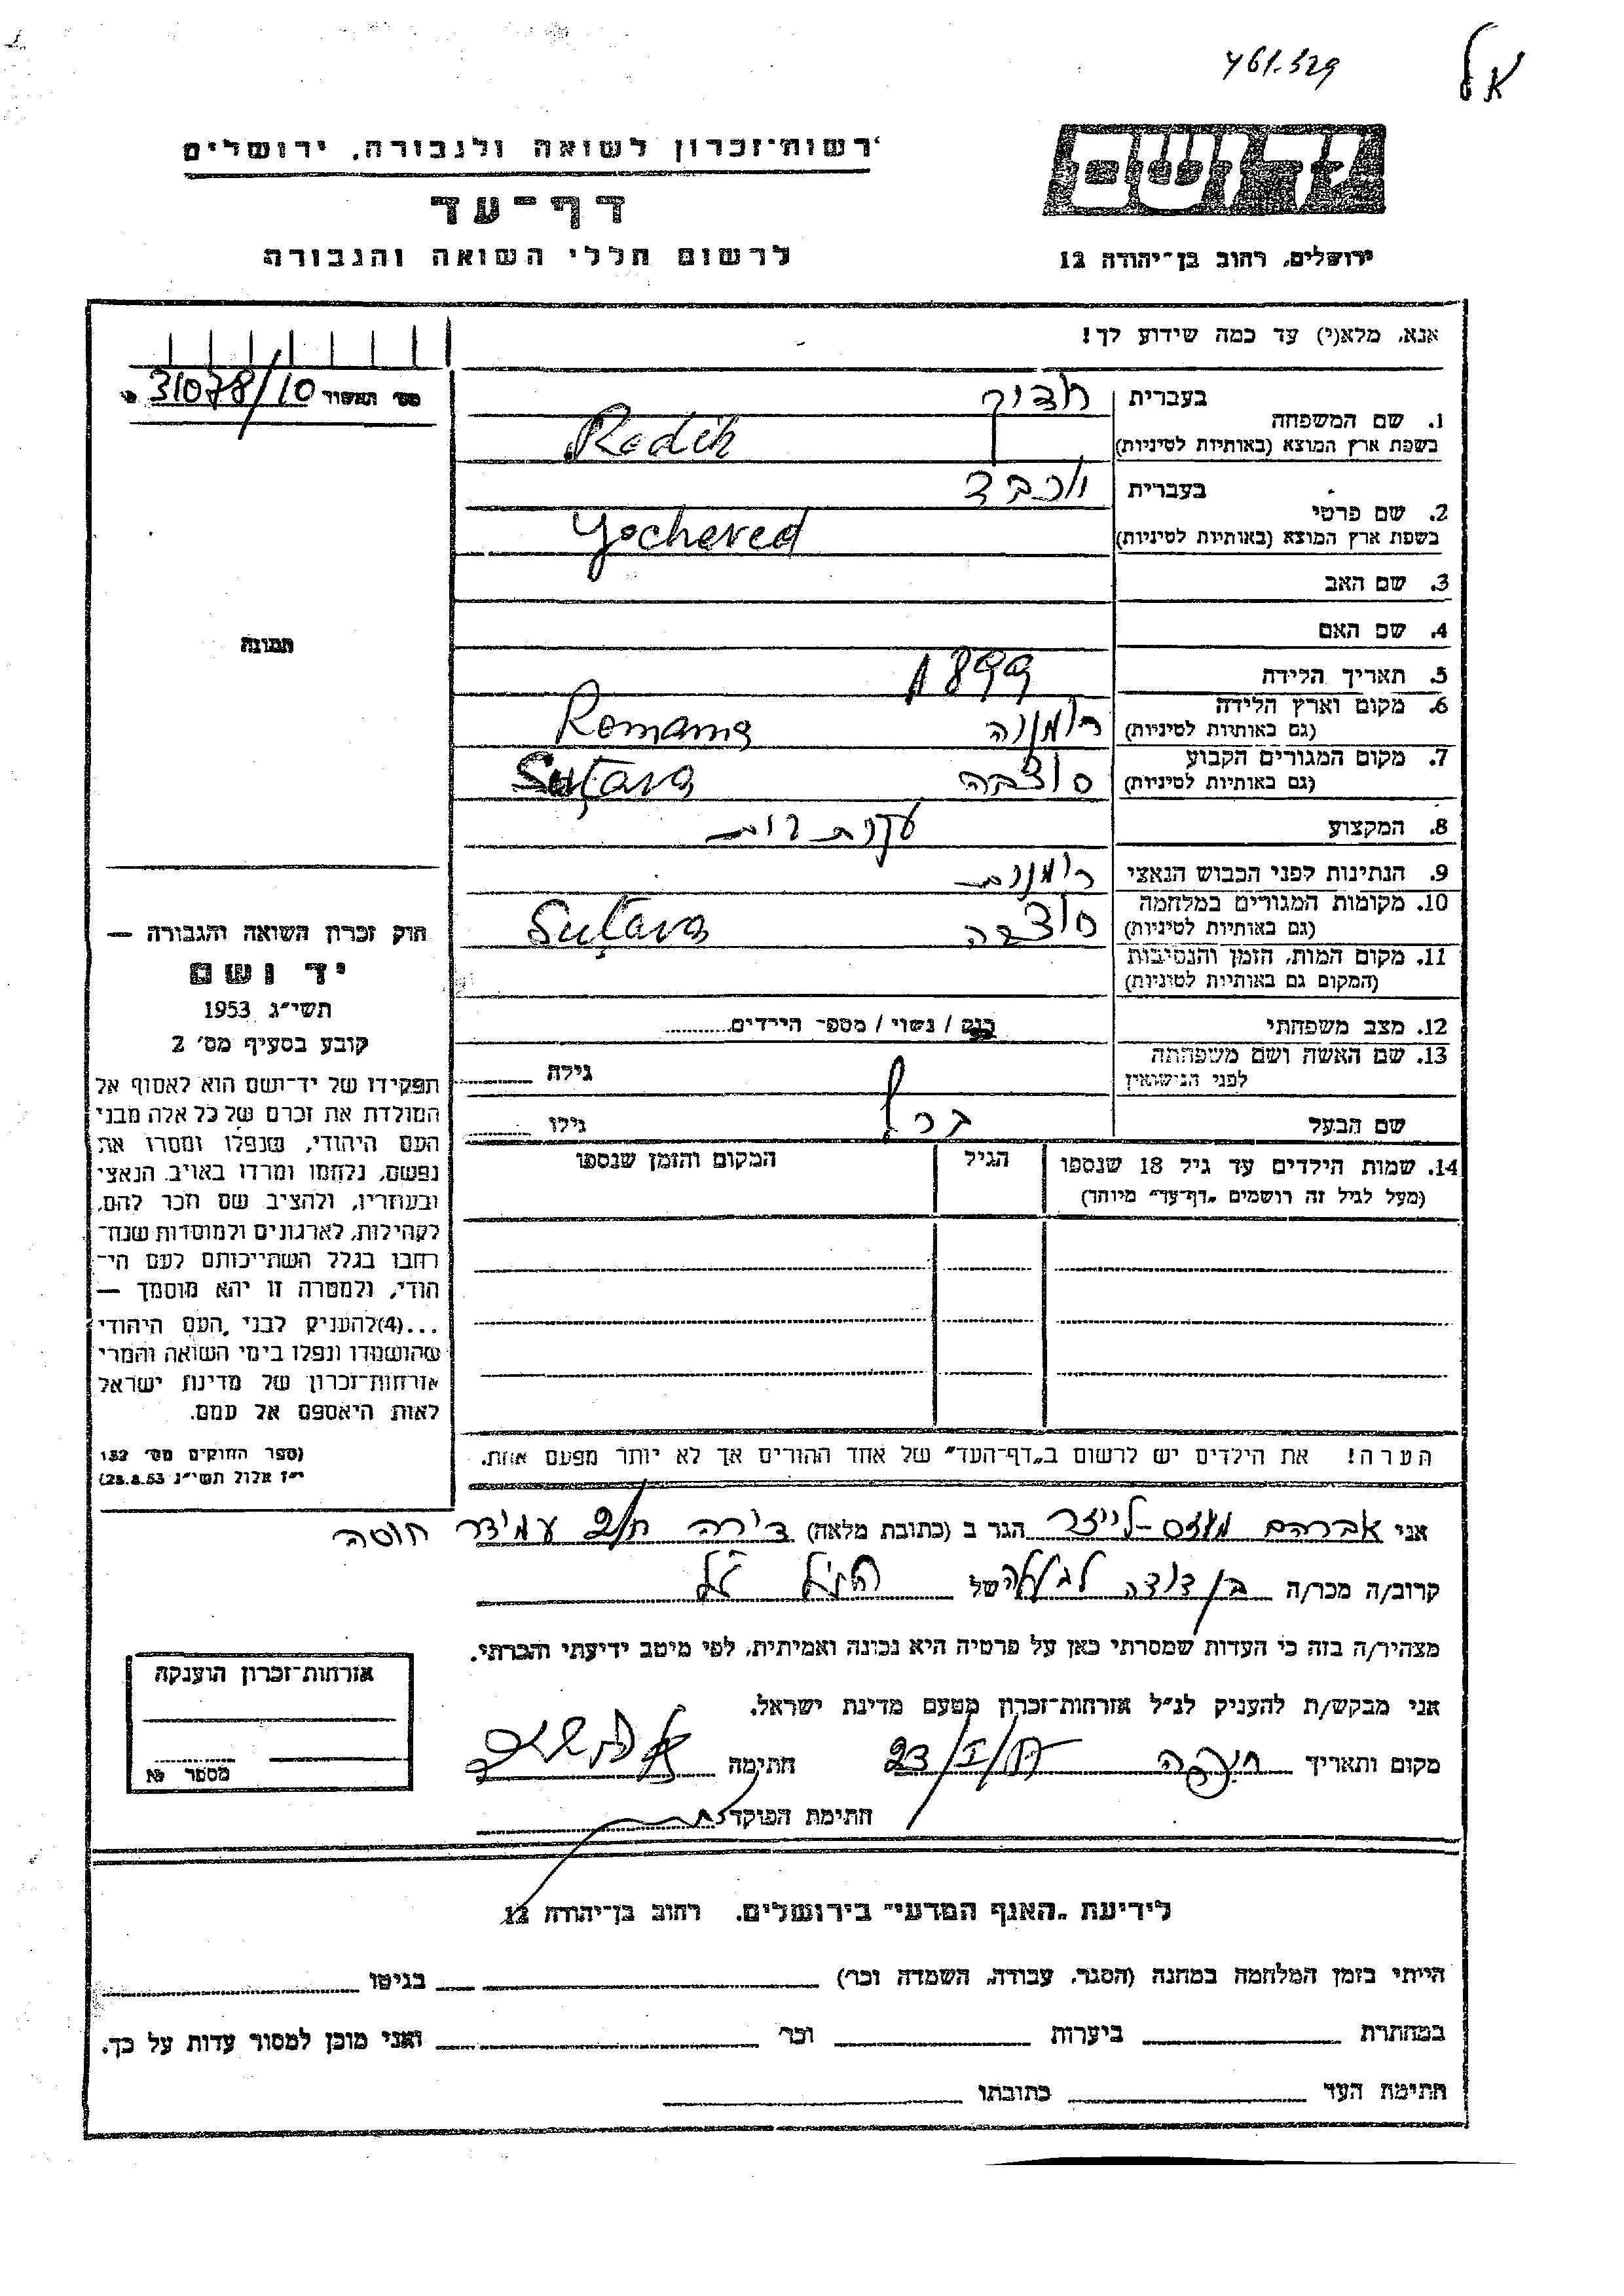 461.329
אל
יד ושם
רשות־זכרון לשואה ולגבורה, ירושלים
דף־עד
לרשום חללי השואה והגבורה
ירושלים, רחוב בן־יהודה 12
אנא, מלא(י) עד כמה שידוע לך!
מס׳ תאשור 31078/10
1. שם המשפחה
בעברית רדיק
בשפת ארץ המוצא (באותיות לטיניות) Radik
2. שם פרטי
בעברית יוכבד
בשפת ארץ המוצא (באותיות לטיניות) Yocheved
3. שם האב
4. שם האם
תמונה
5. תאריך הלידה 1899
6. מקום וארץ הלידה
(גם באותיות לטיניות) רומניה Romania
7. מקום המגורים הקבוע
(גם באותיות לטיניות) סוצבה Suțava
8. המקצוע עקרת בית
9. הנתינות לפני הכבוש הנאצי רומנית
10. מקומות המגורים במלחמה
(גם באותיות לטיניות) סוצבה Suțava
11. מקום המות, הזמן והנסיבות
(המקום גם באותיות לטיניות)
12. מצב משפחתי
רוק / נשוי / מספר הילדים
13. שם האשה ושם משפחתה
לפני הנישואין
גילה
שם הבעל ברל גילו
14. שמות הילדים עד גיל 18 שנספו
(מעל לגיל זה רושמים „דף־עד״ מיוחד)
הגיל
המקום והזמן שנספו
הערה! את הילדים יש לרשום ב„דף־העד״ של אחד ההורים אך לא יותר מפעם אחת.
חוק זכרון השואה והגבורה —
יד ושם
תשי״ג 1953
קובע בסעיף מס׳ 2
תפקידו של יד־ושם הוא לאסוף אל
המולדת את זכרם של כל אלה מבני
העם היהודי, שנפלו ומסרו את
נפשם, נלחמו ומרדו באויב הנאצי
ובעוזריו, ולהציב שם וזכר להם,
לקהילות, לארגונים ולמוסדות שנח־
רחבו בגלל השתייכותם לעם הי־
הודי, ולמטרה זו יהא מוסמך —
...(4)להעניק לבני העם היהודי
שהושמדו ונפלו בימי השואה והמרי
אזרחות־זכרון של מדינת ישראל
לאות היאספם אל עמם.
(ספר החוקים מס׳ 132
י״ז אלול תשי״ג 28.8.53)
אני אברהם הגר ב (כתובת מלאה) דירה עמידר
קרוב/ה מכר/ה בן דודה של הנ״ל
מצהיר/ה בזה כי העדות שמסרתי כאן על פרטיה היא נכונה ואמיתית, לפי מיטב ידיעתי והכרתי.
אני מבקש/ת להעניק לנ״ל אזרחות־זכרון מטעם מדינת ישראל.
מקום ותאריך חיפה 23/I/ חתימה
חתימת הפוקד
אזרחות־זכרון הוענקה
מספר №
לידיעת „האגף המדעי״ בירושלים, רחוב בן־יהודה 12
הייתי בזמן המלחמה במחנה (הסגר, עבודה, השמדה וכו׳) בגיטו
במחתרת ביערות וכו׳ ואני מוכן למסור עדות על כך.
חתימת העד כתובתו